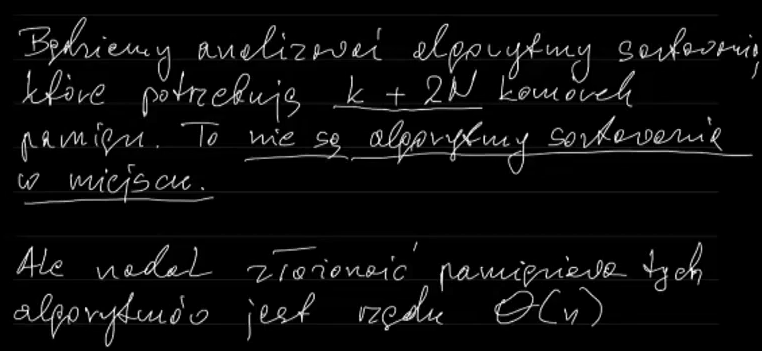 Będziemy analizować algorytmy sortowania,
które potrzebują k + 2N komórek
pamięci. To nie są algorytmy sortowania
w miejscu.
Ale nadal złożoność pamięciowa tych
algorytmów jest rzędu Θ(n)